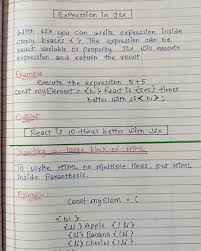 Expression in JSX
With JSX you can write expression inside
curly braces { } The expression can be
react variable or property JSX will execute
expression and return the result.
Example
Execute the expression 5+5
const myElement = <h1> React is {5+5} times
better with JSX </h1>;
Output
React is 10 times better with JSX
Inserting a large block of HTML
To write HTML on multiple lines, put HTML
inside Parenthesis.
Example:
const myElem = (